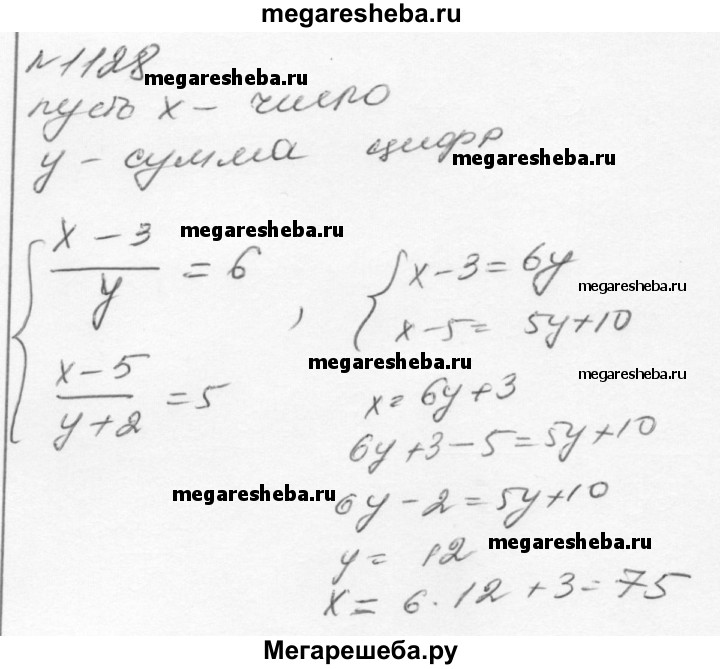 megaresheba.ru
№1128
megaresheba.ru
пусть x – число
y – сумма цифр
megaresheba.ru
{ (x – 3)/y = 6
megaresheba.ru
(x – 5)/(y + 2) = 5 ,
{ x – 3 = 6y
megaresheba.ru
x – 5 = 5y + 10
megaresheba.ru
megaresheba.ru
x = 6y + 3
6y + 3 – 5 = 5y + 10
megaresheba.ru
6y – 2 = 5y + 10
y = 12
megaresheba.ru
x = 6 · 12 + 3 = 75
Мегарешеба.ру